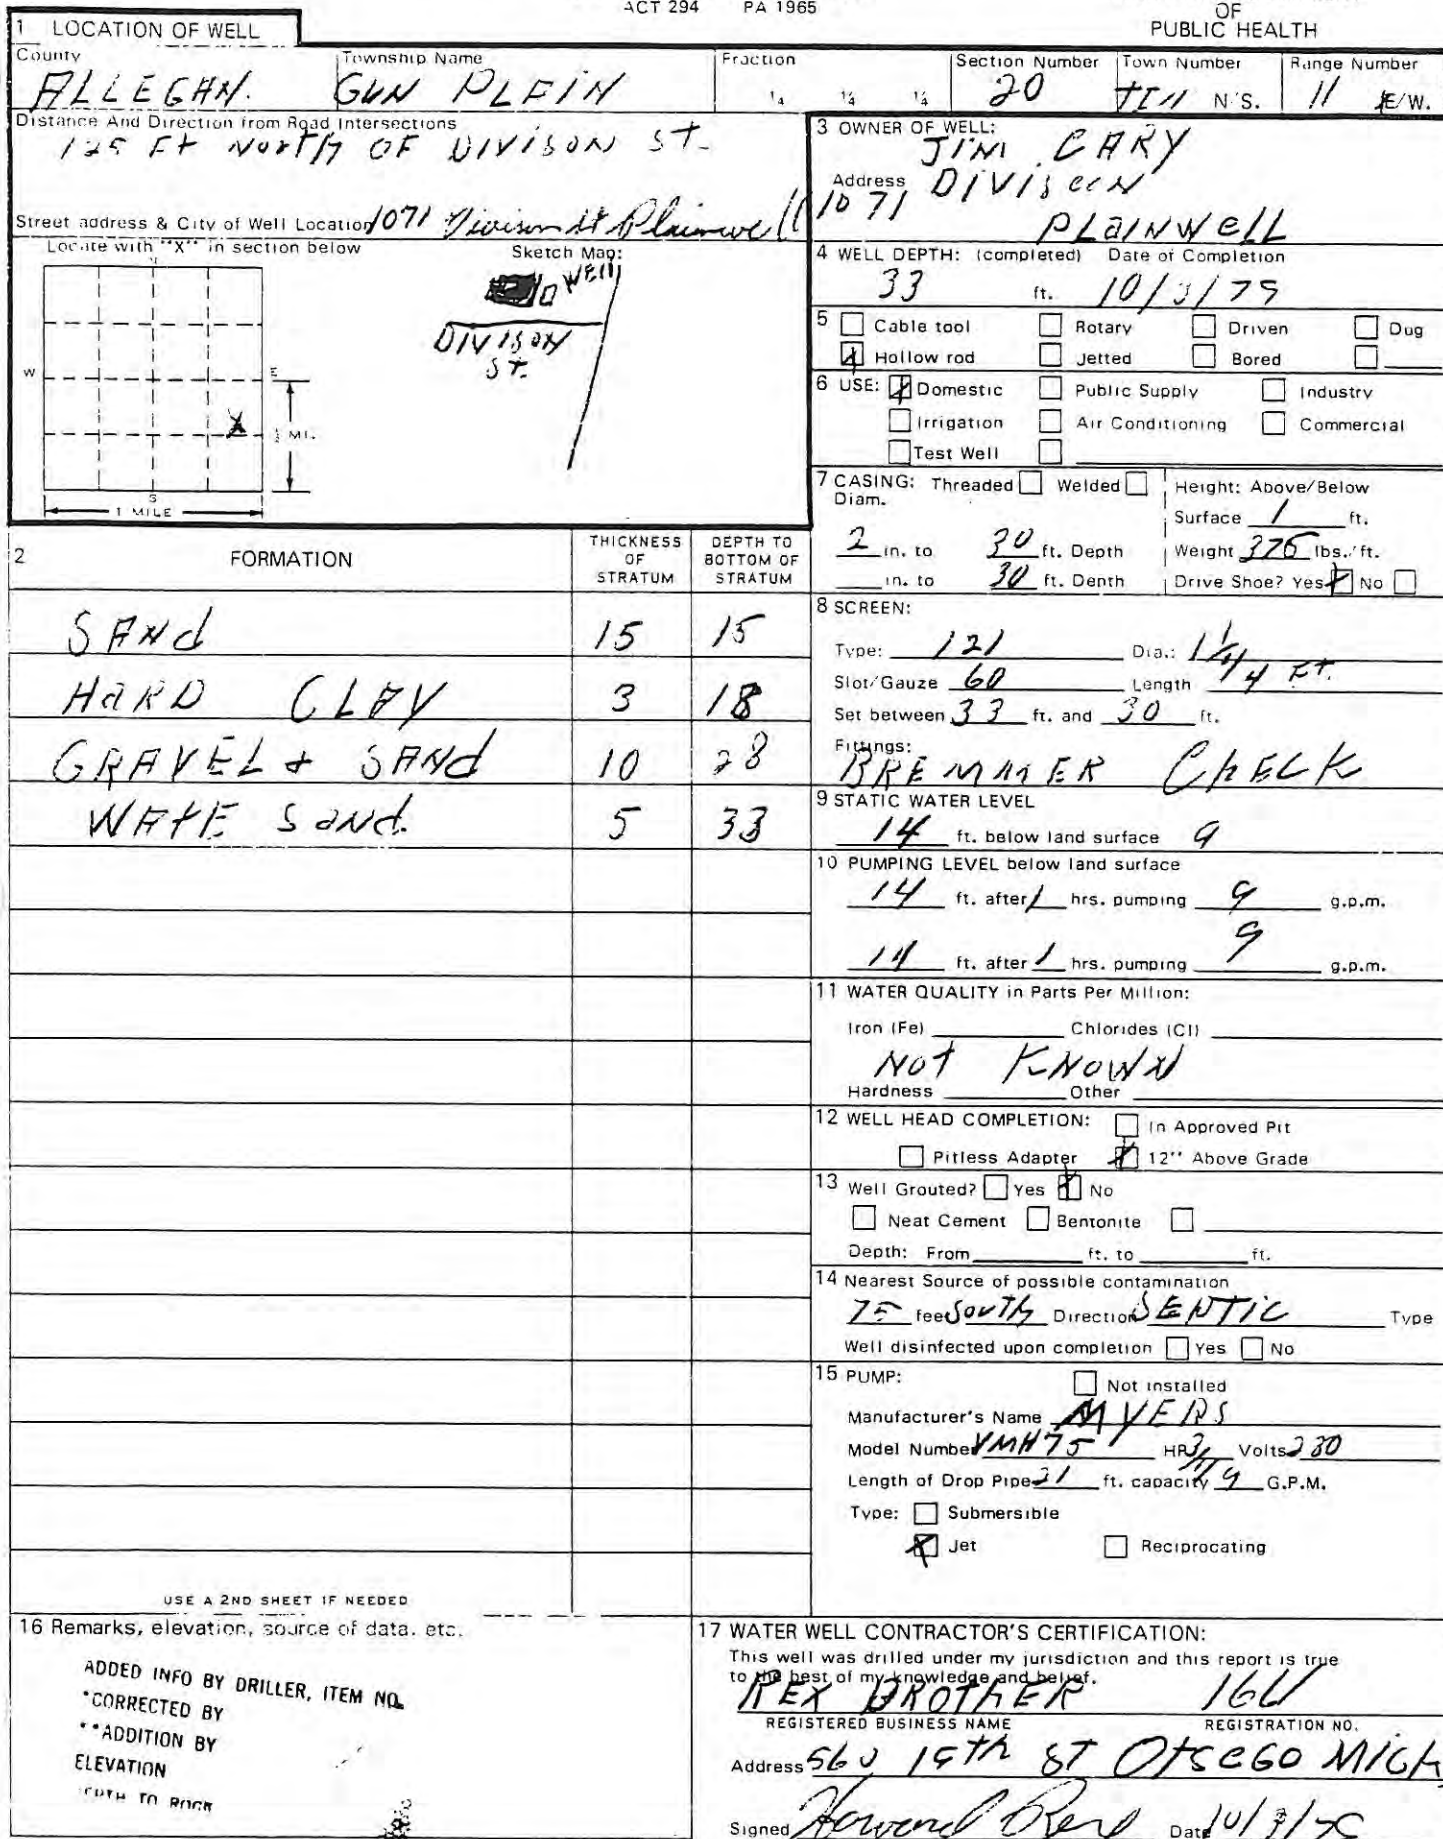 ACT 294 PA 1965
OF
PUBLIC HEALTH
1 LOCATION OF WELL
County Township Name Fraction Section Number Town Number Range Number
ALLEGAN. GUN PLAIN ¼ ¼ ¼ 20 N/S. 11 E/W.
Distance And Direction from Road Intersections
125 Ft North OF DIVISON ST.
Street address & City of Well Location 1071 Divison St Plainwell
Locate with "X" in section below
Sketch Map:
WELL
DIVISON
ST.
W
E
X
½ MI.
S
1 MILE
3 OWNER OF WELL:
JIM CARY
Address DIVISON
1071
PLAINWELL
4 WELL DEPTH: (completed) Date of Completion
33 ft. 10/3/75
5 Cable tool Rotary Driven Dug
Hollow rod Jetted Bored
6 USE: Domestic Public Supply Industry
Irrigation Air Conditioning Commercial
Test Well
7 CASING: Threaded Welded Height: Above/Below
Diam.
Surface 1 ft.
2 in. to 30 ft. Depth Weight 375 lbs./ft.
in. to 30 ft. Depth Drive Shoe? Yes No
2 FORMATION THICKNESS OF STRATUM DEPTH TO BOTTOM OF STRATUM
SANd 15 15
HaRD CLAY 3 18
GRAVEL + SANd 10 28
WATE SaNd. 5 33
8 SCREEN:
Type: 121 Dia.: 1 1/4
Slot/Gauze 60 Length 4 FT.
Set between 33 ft. and 30 ft.
Fittings:
BREMMER CHECK
9 STATIC WATER LEVEL
14 ft. below land surface 9
10 PUMPING LEVEL below land surface
14 ft. after 1 hrs. pumping 9 g.p.m.
14 ft. after 1 hrs. pumping 9 g.p.m.
11 WATER QUALITY in Parts Per Million:
Iron (Fe) Chlorides (Cl)
NOT KNOWN
Hardness Other
12 WELL HEAD COMPLETION: In Approved Pit
Pitless Adapter 12" Above Grade
13 Well Grouted? Yes No
Neat Cement Bentonite
Depth: From ft. to ft.
14 Nearest Source of possible contamination
75 feet South Direction SEPTIC Type
Well disinfected upon completion Yes No
15 PUMP: Not installed
Manufacturer's Name MYERS
Model Number VMH75 HP 3/4 Volts 230
Length of Drop Pipe 21 ft. capacity 9 G.P.M.
Type: Submersible
Jet Reciprocating
USE A 2ND SHEET IF NEEDED
16 Remarks, elevation, source of data. etc.
ADDED INFO BY DRILLER, ITEM NO.
*CORRECTED BY
**ADDITION BY
ELEVATION
DEPTH TO ROCK
17 WATER WELL CONTRACTOR'S CERTIFICATION:
This well was drilled under my jurisdiction and this report is true
to the best of my knowledge and belief.
REX BROTHER
REGISTERED BUSINESS NAME REGISTRATION NO.
Address 560 19th ST OTSEGO MICH
Signed Howard Rex Date